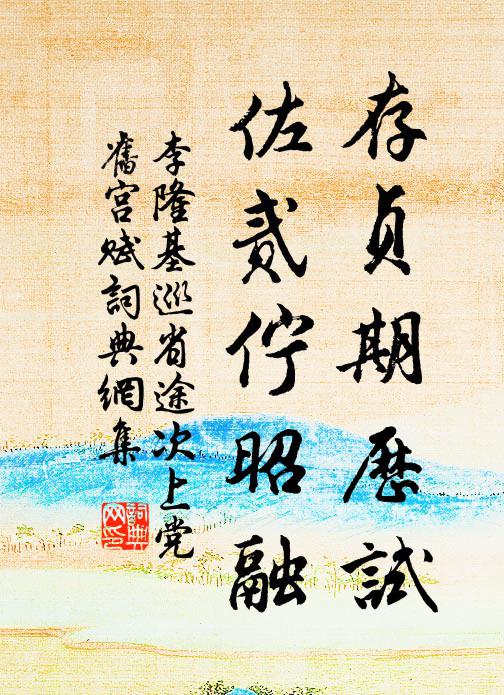 存貞期歷試
佐貳佇昭融
李隆基巡省途次上党
舊宮赋詞典網集
詞典
网印